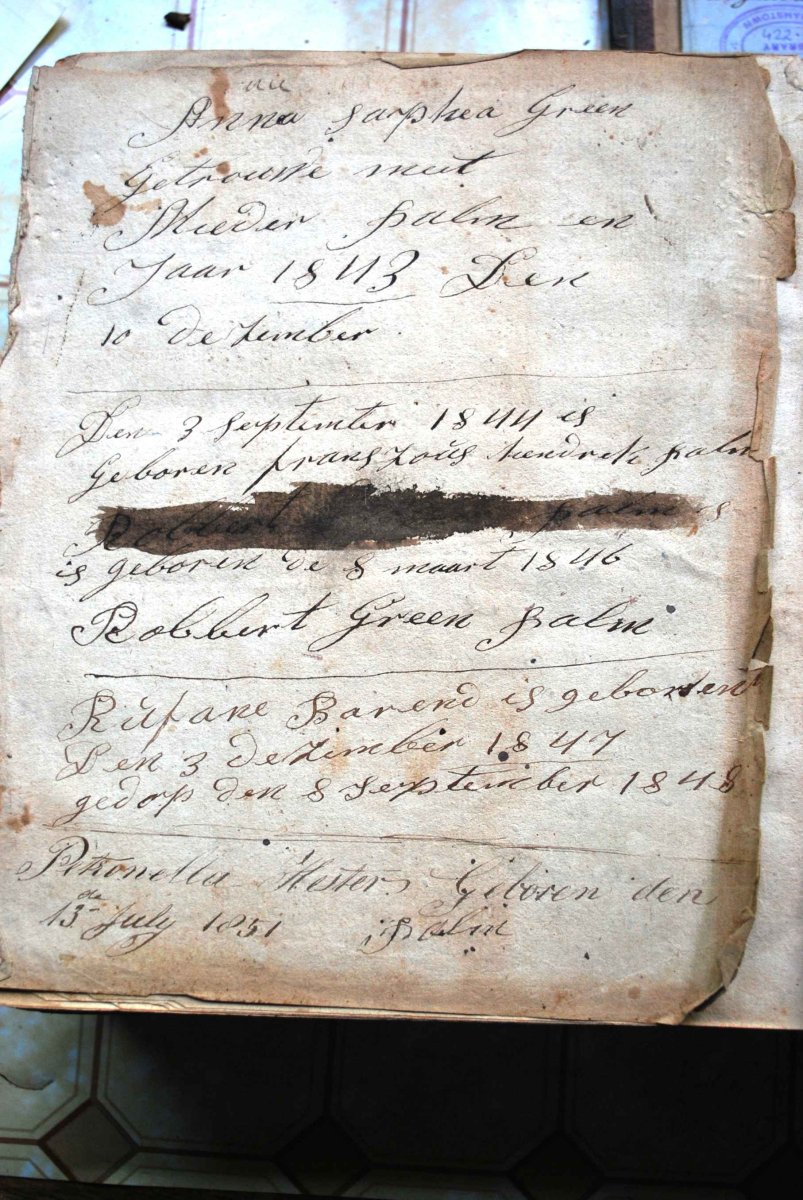 Anna Saphea Green
Getrouwde meet
Mieder palm en
Jaar 1843 Den
10 Dezember
Den 3 September 1844 is
Geboren franszous hendrek palm
Robbert palm is
is geboren de 8 maart 1846
Robbert Green palm
Rufane Barend is geboren
Den 3 dezember 1847
gedop den 8 September 1848
Petronella Hester Geboren den
13de July 1851 palm
STOWN
422
RARY